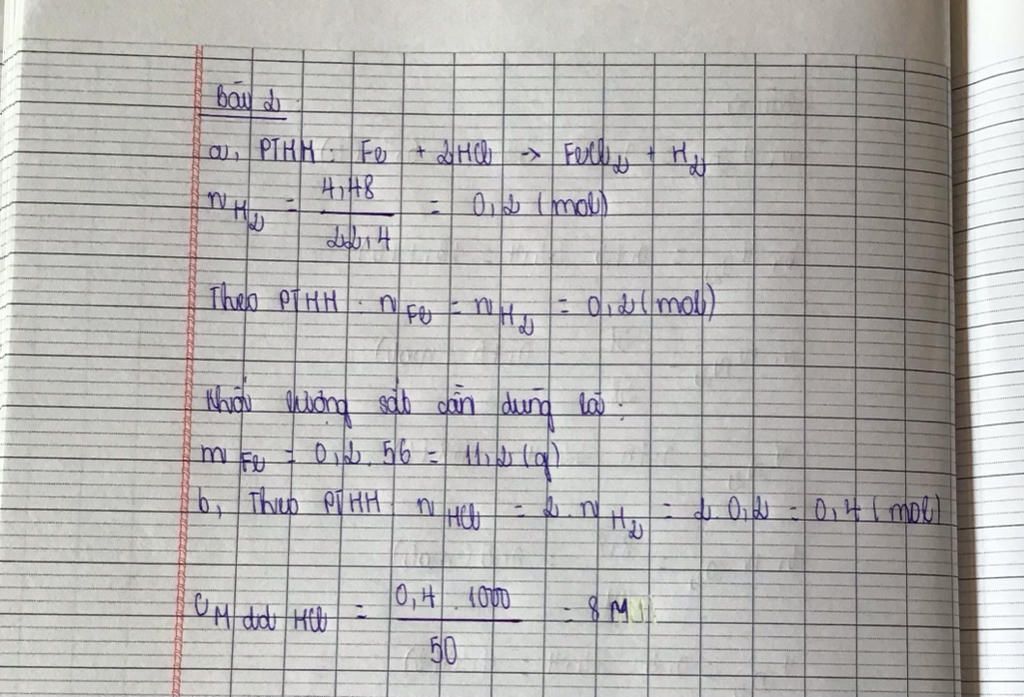 Bài 2:
a, PTHH: Fe + 2HCl → FeCl₂ + H₂
n H₂ = 4,48 / 22,4 = 0,2 (mol)
Theo PTHH: n Fe = n H₂ = 0,2 (mol)
Khối lượng sắt cần dùng là:
m Fe = 0,2 . 56 = 11,2 (g)
b, Theo PTHH n HCl = 2. n H₂ = 2 0,2 = 0,4 (mol)
C M dd HCl = 0,4 . 1000 / 50 = 8 M